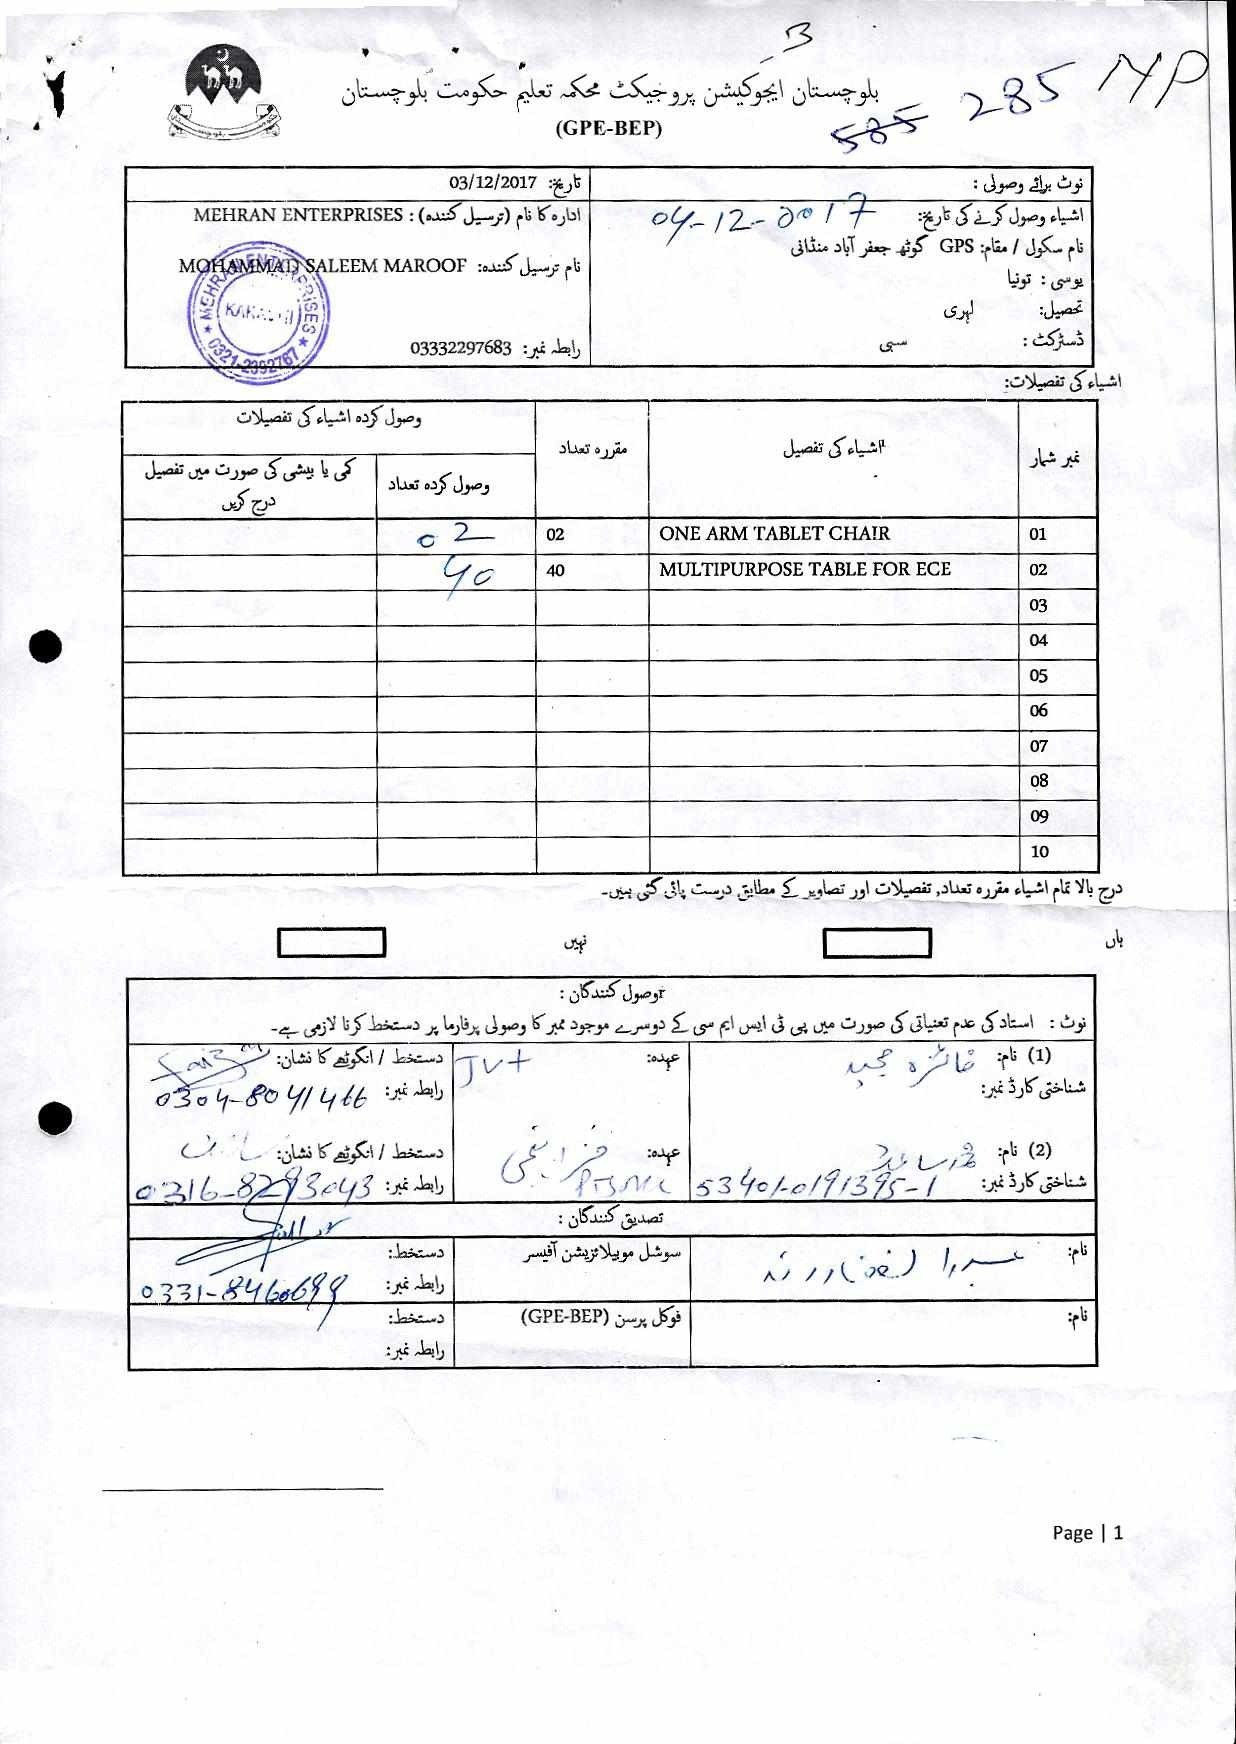 3
بلوچستان ایجوکیشن پروجیکٹ محکمہ تعلیم حکومت بلوچستان
(GPE-BEP)
585 285 MP
نوٹ برائے وصولی :
اشیاء وصول کرنے کی تاریخ: 04-12-2017
نام سکول / مقام: GPS گوٹھ جعفر آباد منڈائی
یوسی : تونیا
تحصیل: لہڑی
ڈسٹرکٹ : سبی
تاریخ: 03/12/2017
ادارہ کا نام (ترسیل کنندہ) : MEHRAN ENTERPRISES
نام ترسیل کنندہ: MOHAMMAD SALEEM MAROOF
رابطہ نمبر: 03332297683
★ MEHRAN ENTERPRISES ★
KARACHI
0321-2392767
اشیاء کی تفصیلات:
نمبر شمار اشیاء کی تفصیل مقررہ تعداد وصول کردہ اشیاء کی تفصیلات
وصول کردہ تعداد کمی یا بیشی کی صورت میں تفصیل درج کریں
01 ONE ARM TABLET CHAIR 02 02
02 MULTIPURPOSE TABLE FOR ECE 40 40
03
04
05
06
07
08
09
10
درج بالا تمام اشیاء مقررہ تعداد, تفصیلات اور تصاویر کے مطابق درست پائی گئی ہیں۔
ہاں نہیں
وصول کنندگان :
نوٹ : استاد کی عدم تعنیاتی کی صورت میں پی ٹی ایس ایم سی کے دوسرے موجود ممبر کا وصولی پرفارما پر دستخط کرنا لازمی ہے۔
(1) نام: فائزہ مجید عہدہ: JVT دستخط / انگوٹھے کا نشان:
شناختی کارڈ نمبر: رابطہ نمبر: 0304-8041466
(2) نام: عہدہ: خزانچی PTSMC دستخط / انگوٹھے کا نشان:
شناختی کارڈ نمبر: 53401-0191395-1 رابطہ نمبر: 0316-8293043
تصدیق کنندگان :
نام: سوشل موبیلائزیشن آفیسر دستخط:
رابطہ نمبر: 0331-8460699
نام: فوکل پرسن (GPE-BEP) دستخط:
رابطہ نمبر:
Page | 1